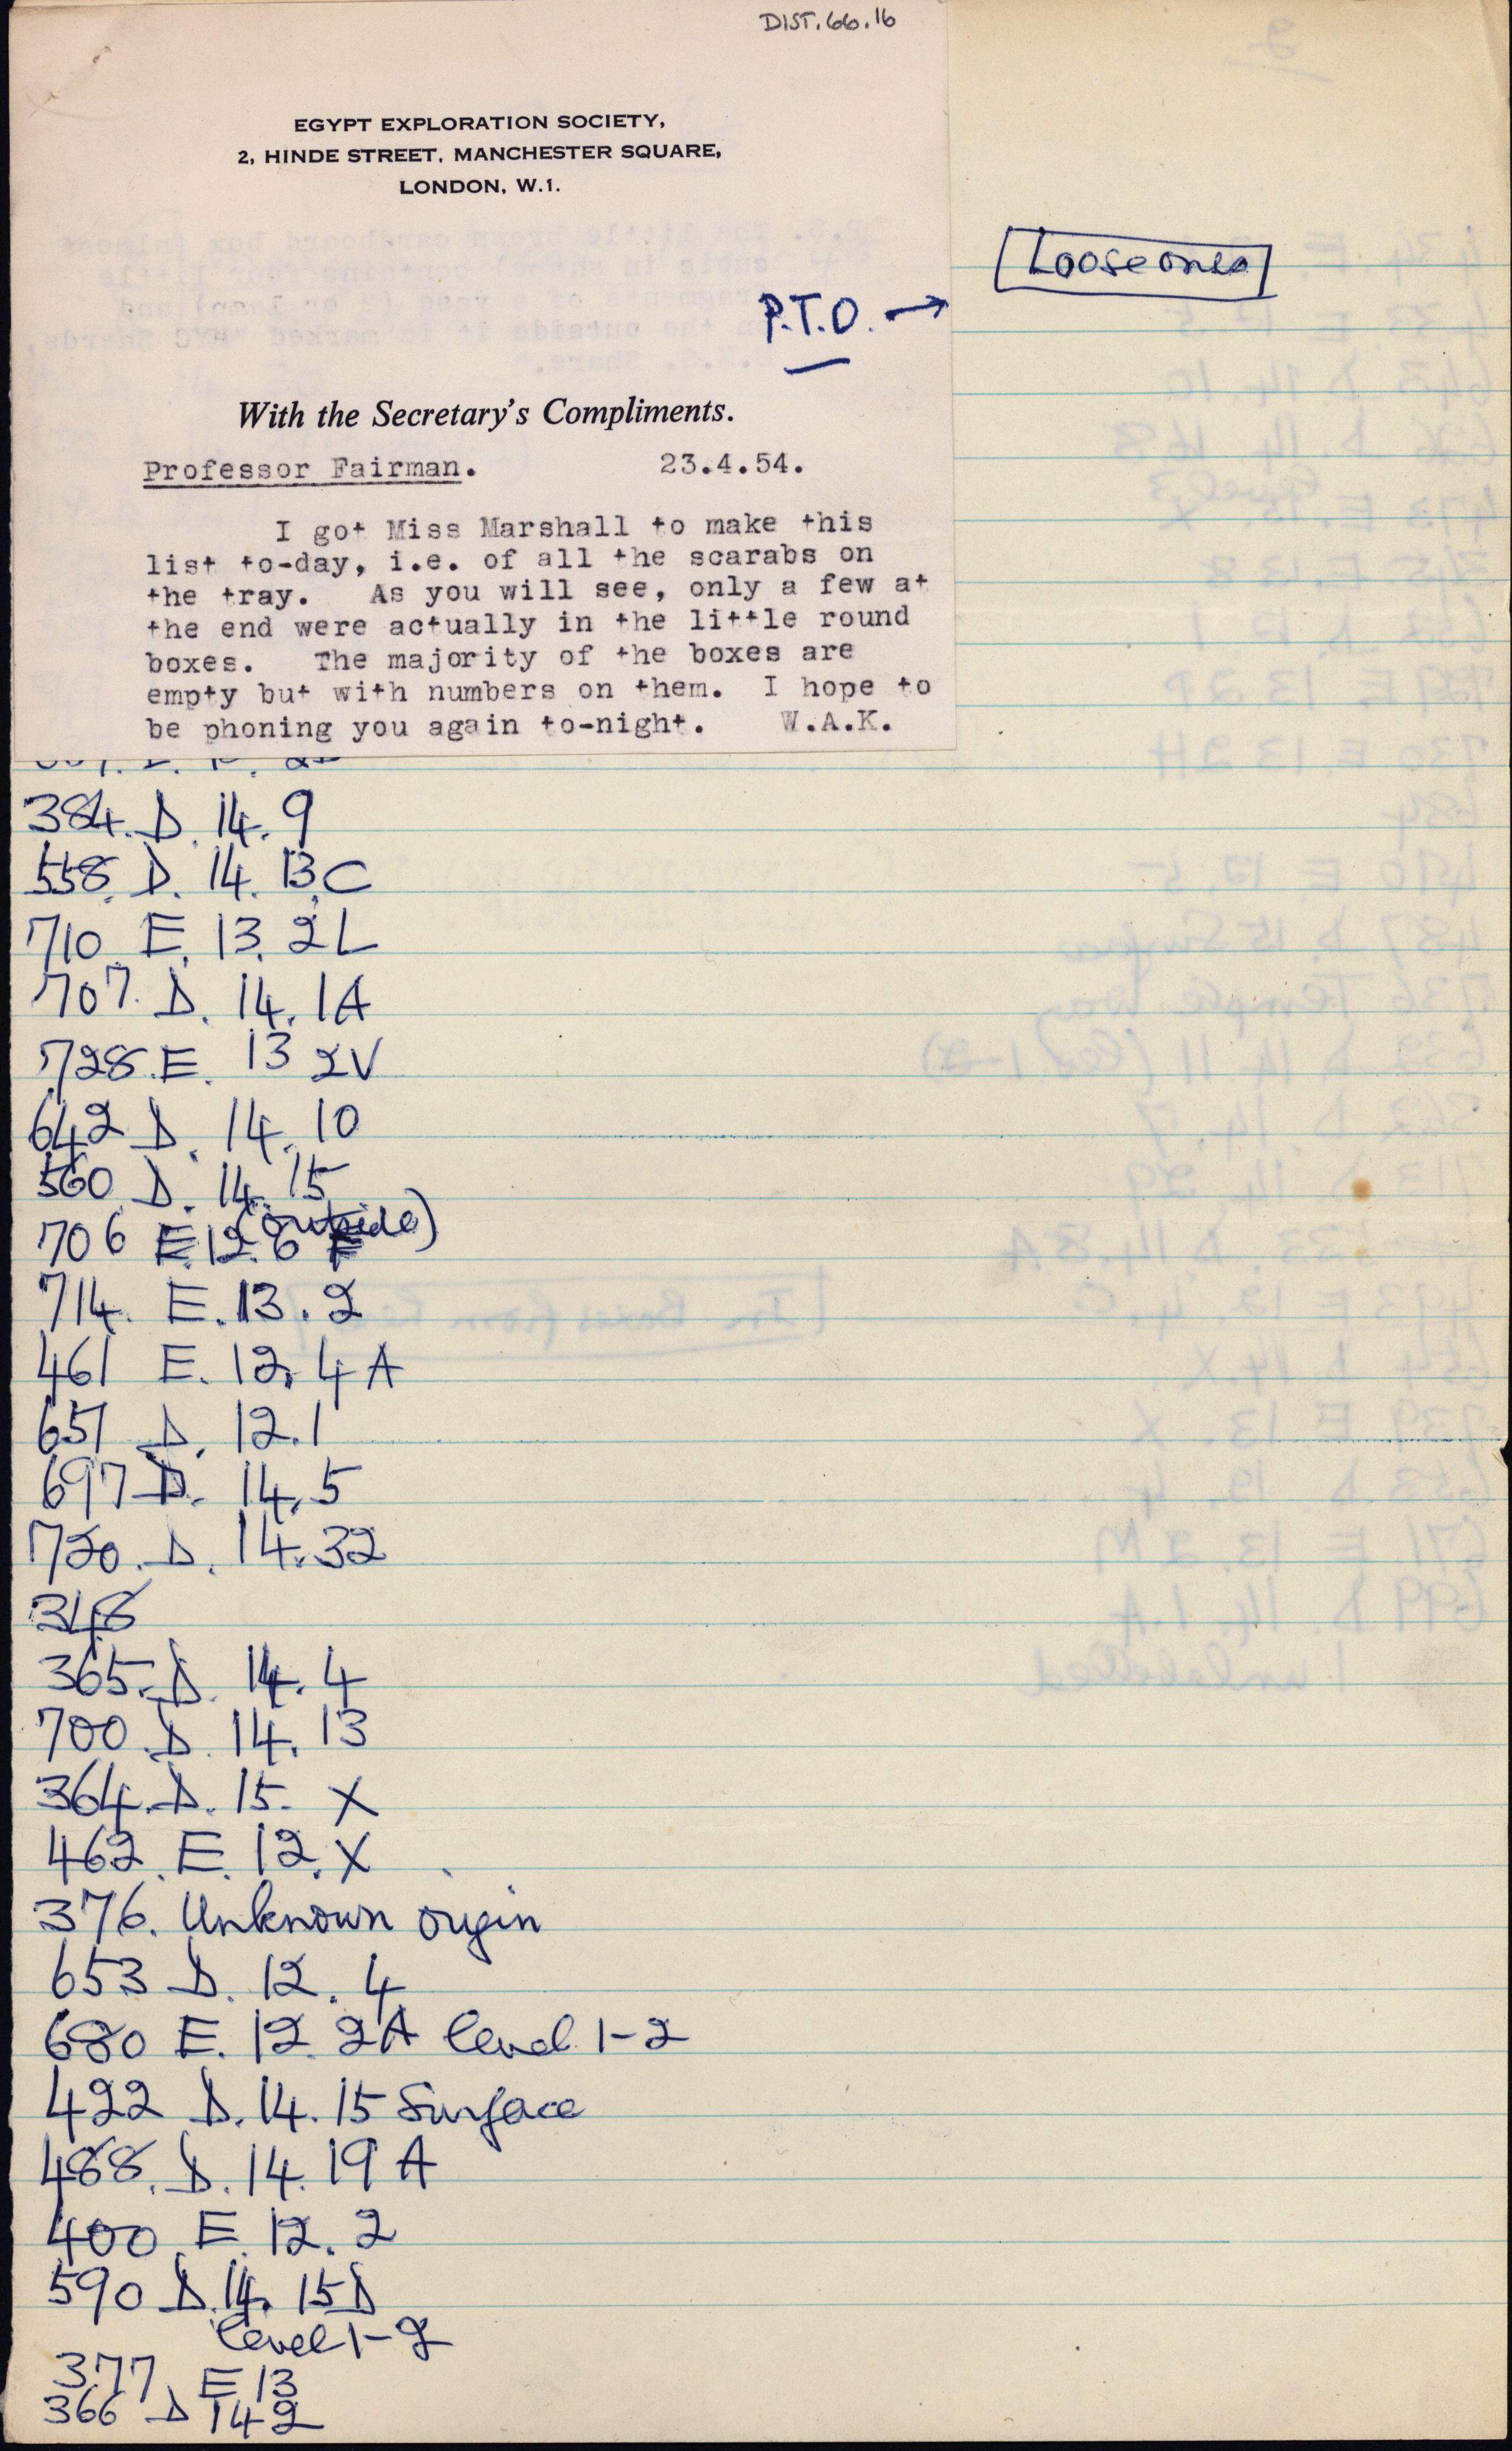 DIST.66.16
EGYPT EXPLORATION SOCIETY,
2, HINDE STREET, MANCHESTER SQUARE,
LONDON, W.1.
Loose ones
P.T.O. →
With the Secretary's Compliments.
Professor Fairman. 23.4.54.
I got Miss Marshall to make this
list to-day, i.e. of all the scarabs on
the tray. As you will see, only a few at
the end were actually in the little round
boxes. The majority of the boxes are
empty but with numbers on them. I hope to
be phoning you again to-night. W.A.K.
384. D. 14. 9
558. D. 14. 13.C
710. E. 13. 2L
707. D. 14. 1A
728. E. 13 2V
642 D. 14. 10
560 D. 14. 15
(outside)
706 E.12.6
714. E. 13. 2
461 E. 12. 4A
651 D. 12.1
697 D. 14. 5
720. D. 14. 32
348
365. D. 14. 4
700. D. 14. 13
364. D. 15. X
462. E. 12. X
376. Unknown origin
653 D. 12. 4
680 E. 12. 2A level 1-2
422 D. 14. 15 Surface
488. D. 14. 19 A
400 E. 12. 2
590 D. 14. 15D
level 1-2
377 E 13
366 D 14 2